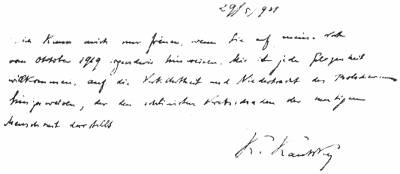 29/5 1921
ich kann mich nur freuen, wenn Sie auf meine
vom Oktober 1919 irgendwie hinweisen. Mir ist jede Gelegenheit
willkommen, auf die und Niedertracht des
hinzuweisen, der den der heutigen
Menschheit darstellt
K. Kautsky